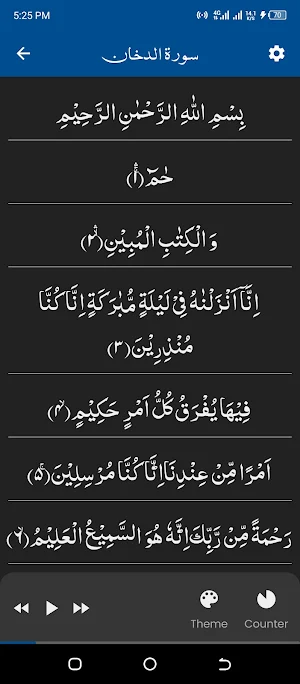 5:25 PM 4G 4G 14.1 K/s 70
سورة الدخان
بِسْمِ اللهِ الرَّحْمٰنِ الرَّحِيْمِ
حٰمٓ ﴿۱﴾
وَالْكِتٰبِ الْمُبِيْنِ ﴿۲﴾
اِنَّاۤ اَنْزَلْنٰهُ فِيْ لَيْلَةٍ مُّبٰرَكَةٍ اِنَّا كُنَّا
مُنْذِرِيْنَ ﴿۳﴾
فِيْهَا يُفْرَقُ كُلُّ اَمْرٍ حَكِيْمٍ ﴿۴﴾
اَمْرًا مِّنْ عِنْدِنَا اِنَّا كُنَّا مُرْسِلِيْنَ ﴿۵﴾
رَحْمَةً مِّنْ رَّبِّكَ اِنَّهٗ هُوَ السَّمِيْعُ الْعَلِيْمُ ﴿۶﴾
Theme Counter